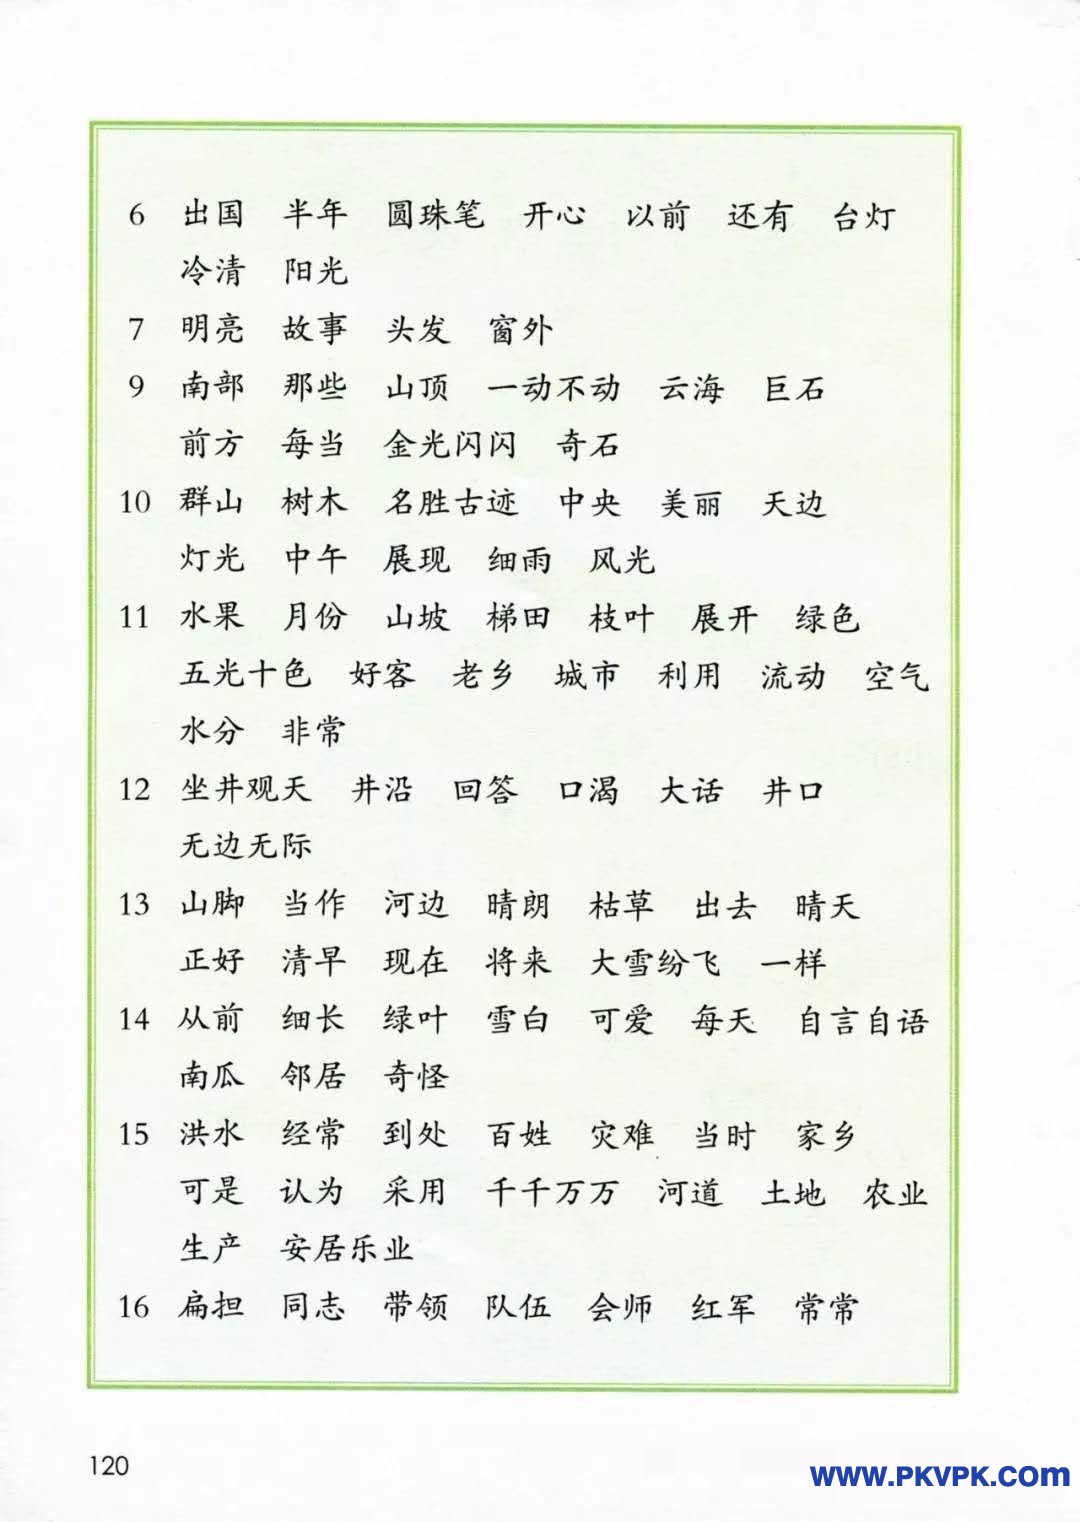 6 出国 半年 圆珠笔 开心 以前 还有 台灯
冷清 阳光
7 明亮 故事 头发 窗外
9 南部 那些 山顶 一动不动 云海 巨石
前方 每当 金光闪闪 奇石
10 群山 树木 名胜古迹 中央 美丽 天边
灯光 中午 展现 细雨 风光
11 水果 月份 山坡 梯田 枝叶 展开 绿色
五光十色 好客 老乡 城市 利用 流动 空气
水分 非常
12 坐井观天 井沿 回答 口渴 大话 井口
无边无际
13 山脚 当作 河边 晴朗 枯草 出去 晴天
正好 清早 现在 将来 大雪纷飞 一样
14 从前 细长 绿叶 雪白 可爱 每天 自言自语
南瓜 邻居 奇怪
15 洪水 经常 到处 百姓 灾难 当时 家乡
可是 认为 采用 千千万万 河道 土地 农业
生产 安居乐业
16 扁担 同志 带领 队伍 会师 红军 常常
120
www.PKVPK.com